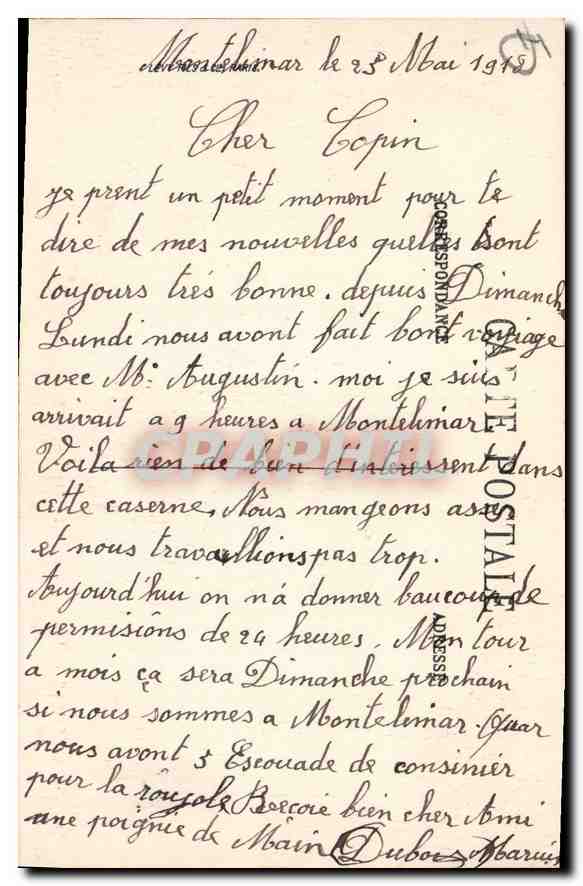 Montelimar le 23 Mai 1918
Cher Copin
je prent un petit moment pour te
dire de mes nouvelles quelles sont
toujours très bonne. depuis Dimanche
Lundi nous avont fait bont voyiage
avec Mr. Augustin. moi je suis
arrivait a 9 heures a Montelimar
Voila rien de bien d'interessent dans
cette caserne, Nous mangeons assez
et nous travaillions pas trop.
Aujourd'hui on n'a donner baucoup de
permisions de 24 heures. Mon tour
a mois ça sera Dimanche prochain
si nous sommes a Montelimar. Quar
nous avont 5 Escouade de consinier
pour la rougole Recoie bien cher Ami
une poignie de Main Dubois Marius
CORRESPONDANCE
CARTE POSTALE
ADRESSE
CPAPHIL